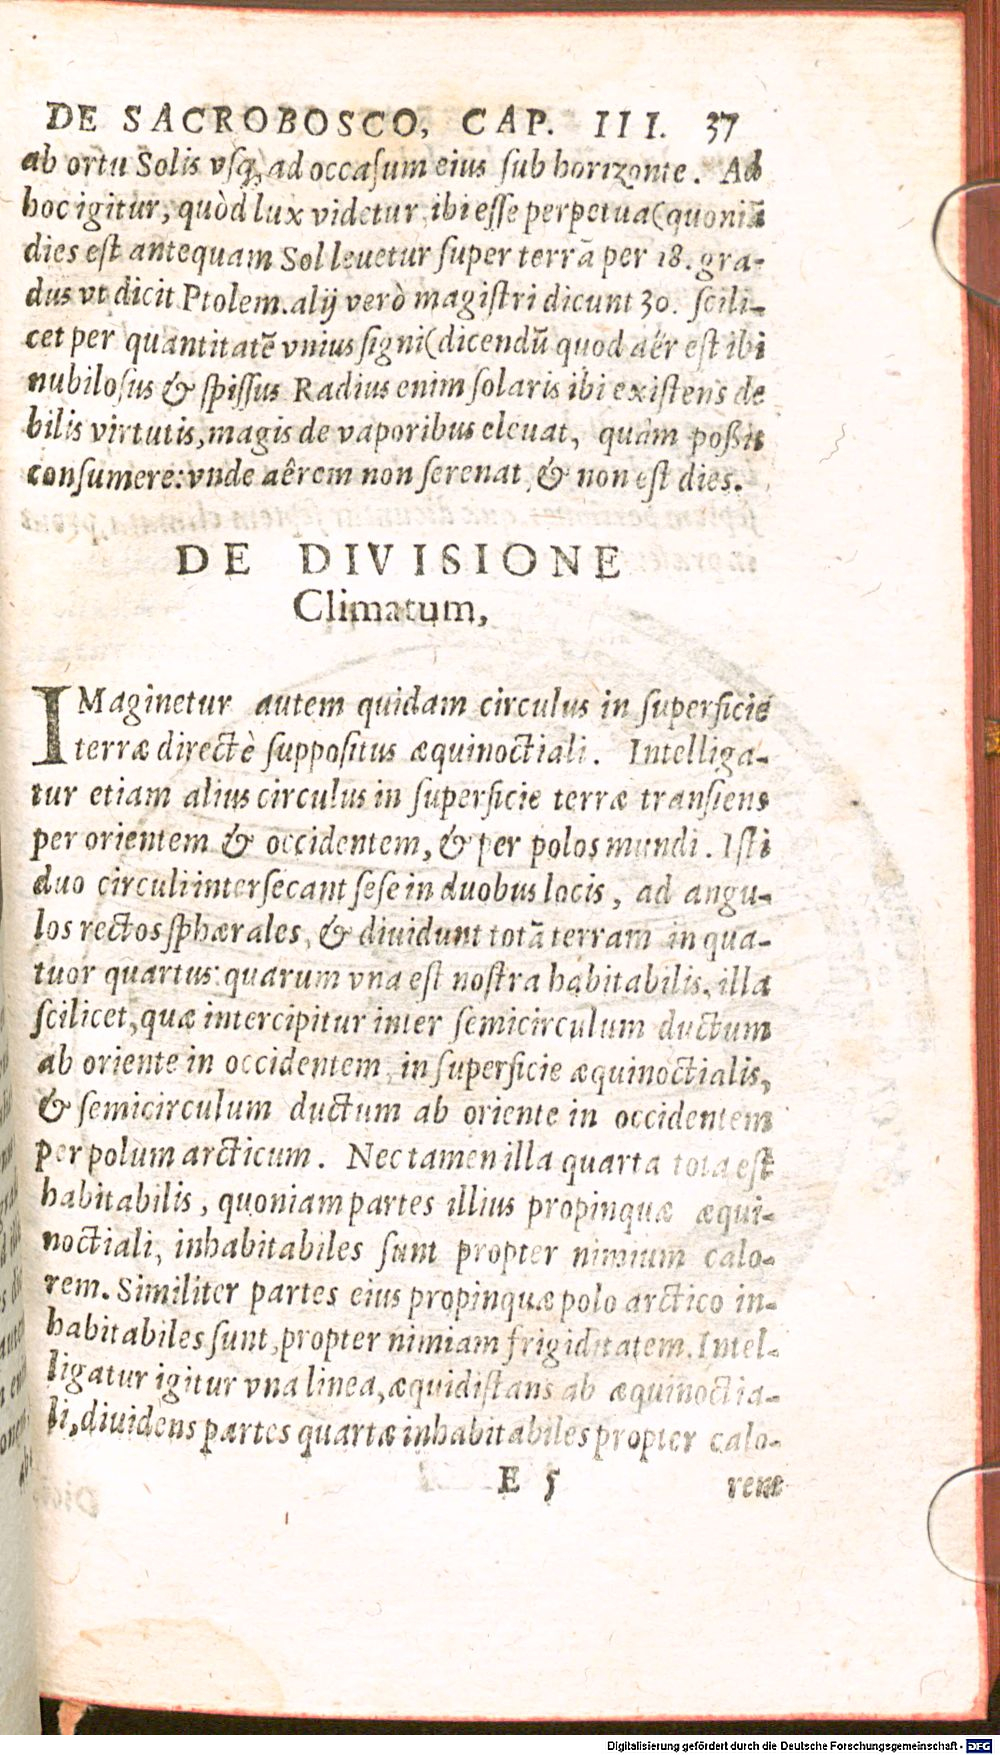 DE SACROBOSCO, CAP. III. 37
ab ortu Solis vsq; ad occasum eius sub horizonte. Ad
hoc igitur, quòd lux videtur ibi esse perpetua (quoniã
dies est antequam Sol leuetur super terrã per 18. gra-
dus vt dicit Ptolem. alij verò magistri dicunt 30. scili-
cet per quantitatẽ vnius signi (dicendũ quod aër est ibi
nubilosus & spissus Radius enim solaris ibi existens de
bilis virtutis, magis de vaporibus eleuat, quàm poßit
consumere: vnde aêrem non serenat, & non est dies.
DE DIVISIONE
Climatum,
IMaginetur autem quidam circulus in superficie
terræ directè suppositus æquinoctiali. Intelliga-
tur etiam alius circulus in superficie terræ transiens
per orientem & occidentem, & per polos mundi. Isti
duo circuli intersecant sese in duobus locis, ad angu-
los rectos sphærales, & diuidunt totã terram in qua-
tuor quartus: quarum vna est nostra habitabilis, illa
scilicet, quæ intercipitur inter semicirculum ductum
ab oriente in occidentem in superficie æquinoctialis,
& semicirculum ductum ab oriente in occidentem
per polum arcticum. Nec tamen illa quarta tota est
habitabilis, quoniam partes illius propinquæ æqui-
noctiali, inhabitabiles sunt propter nimium calo-
rem. Similiter partes eius propinquæ polo arctico in-
habitabiles sunt, propter nimiam frigiditatem. Intel-
ligatur igitur vna linea, æquidistans ab æquinoctia-
li, diuidens partes quartæ inhabitabiles propter calo-
E 5 rem
Digitalisierung gefördert durch die Deutsche Forschungsgemeinschaft - DFG